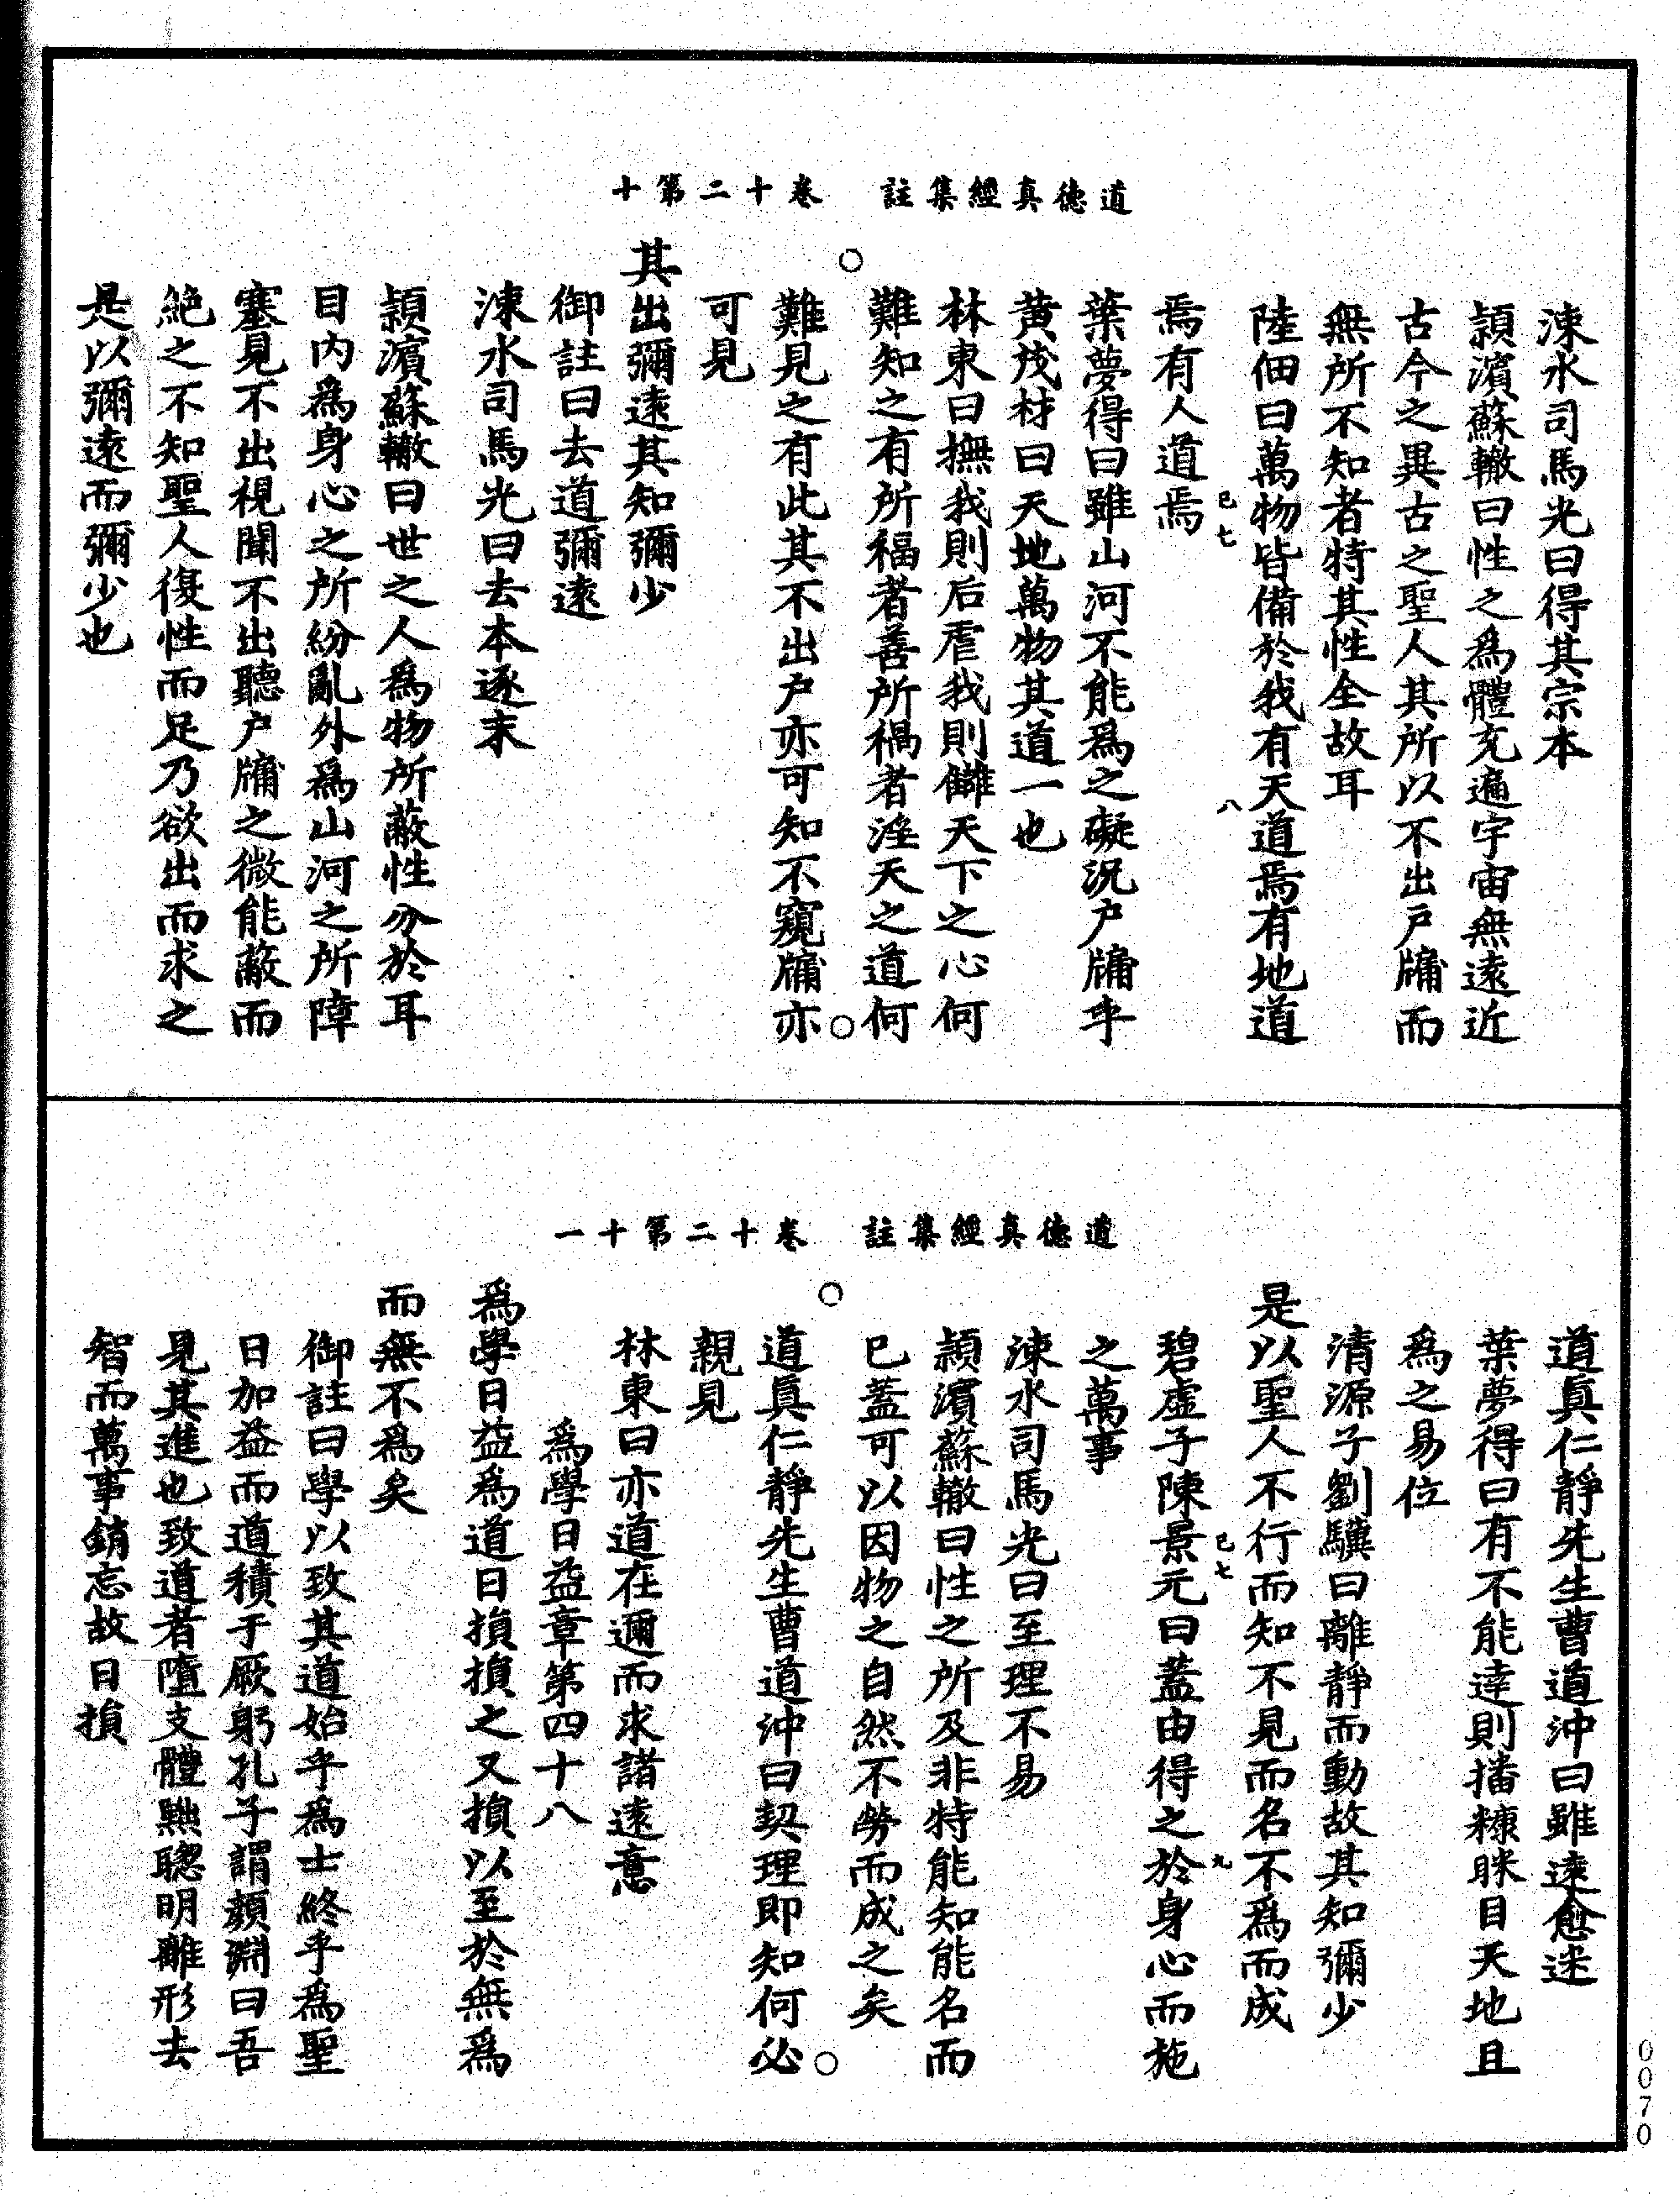 道德真經集註　卷十二第十
涑水司馬光曰得其宗本
頴濱蘇轍曰性之爲體充遍宇宙無遠近
古今之異古之聖人其所以不出戸牖而
無所不知者特其性全故耳
陸佃曰萬物皆備於我有天道焉有地道
己七
八
焉有人道焉
葉夢得曰雖山河不能爲之礙況户牖乎
黄茂材曰天地萬物其道一也
林東曰撫我則后虐我則讎天下之心何
難知之有所福者善所禍者淫天之道何
難見之有此其不出户亦可知不窺牖亦
可見
其出彌遠其知彌少
御註曰去道彌遠
涑水司馬光曰去本逐末
頴濱蘇轍曰世之人爲物所蔽性分於耳
目内爲身心之所紛亂外爲山河之所障
塞見不出視聞不出聽户牖之微能蔽而
絶之不知聖人復性而足乃欲出而求之
是以彌遠而彌少也
道德真經集註　卷十二第十一
道真仁靜先生曹道沖曰雖遠愈迷
葉夢得曰有不能達則播糠眯目天地且
爲之易位
清源子劉驥曰離靜而動故其知彌少
是以聖人不行而知不見而名不爲而成
碧虚子陳景元曰蓋由得之於身心而施
己七
九
之萬事
涑水司馬光曰至理不易
頴濱蘇轍曰性之所及非特能知能名而
已蓋可以因物之自然不勞而成之矣
道真仁靜先生曹道沖曰契理即知何必
親見
林東曰亦道在邇而求諸遠意
爲學日益章第四十八
爲學日益爲道日損損之又損以至於無爲
而無不爲矣
御註曰學以致其道始乎爲士終乎爲聖
日加益而道積于厥躬孔子謂顏淵曰吾
見其進也致道者墮支體黜聦明離形去
智而萬事銷忘故日損
0070